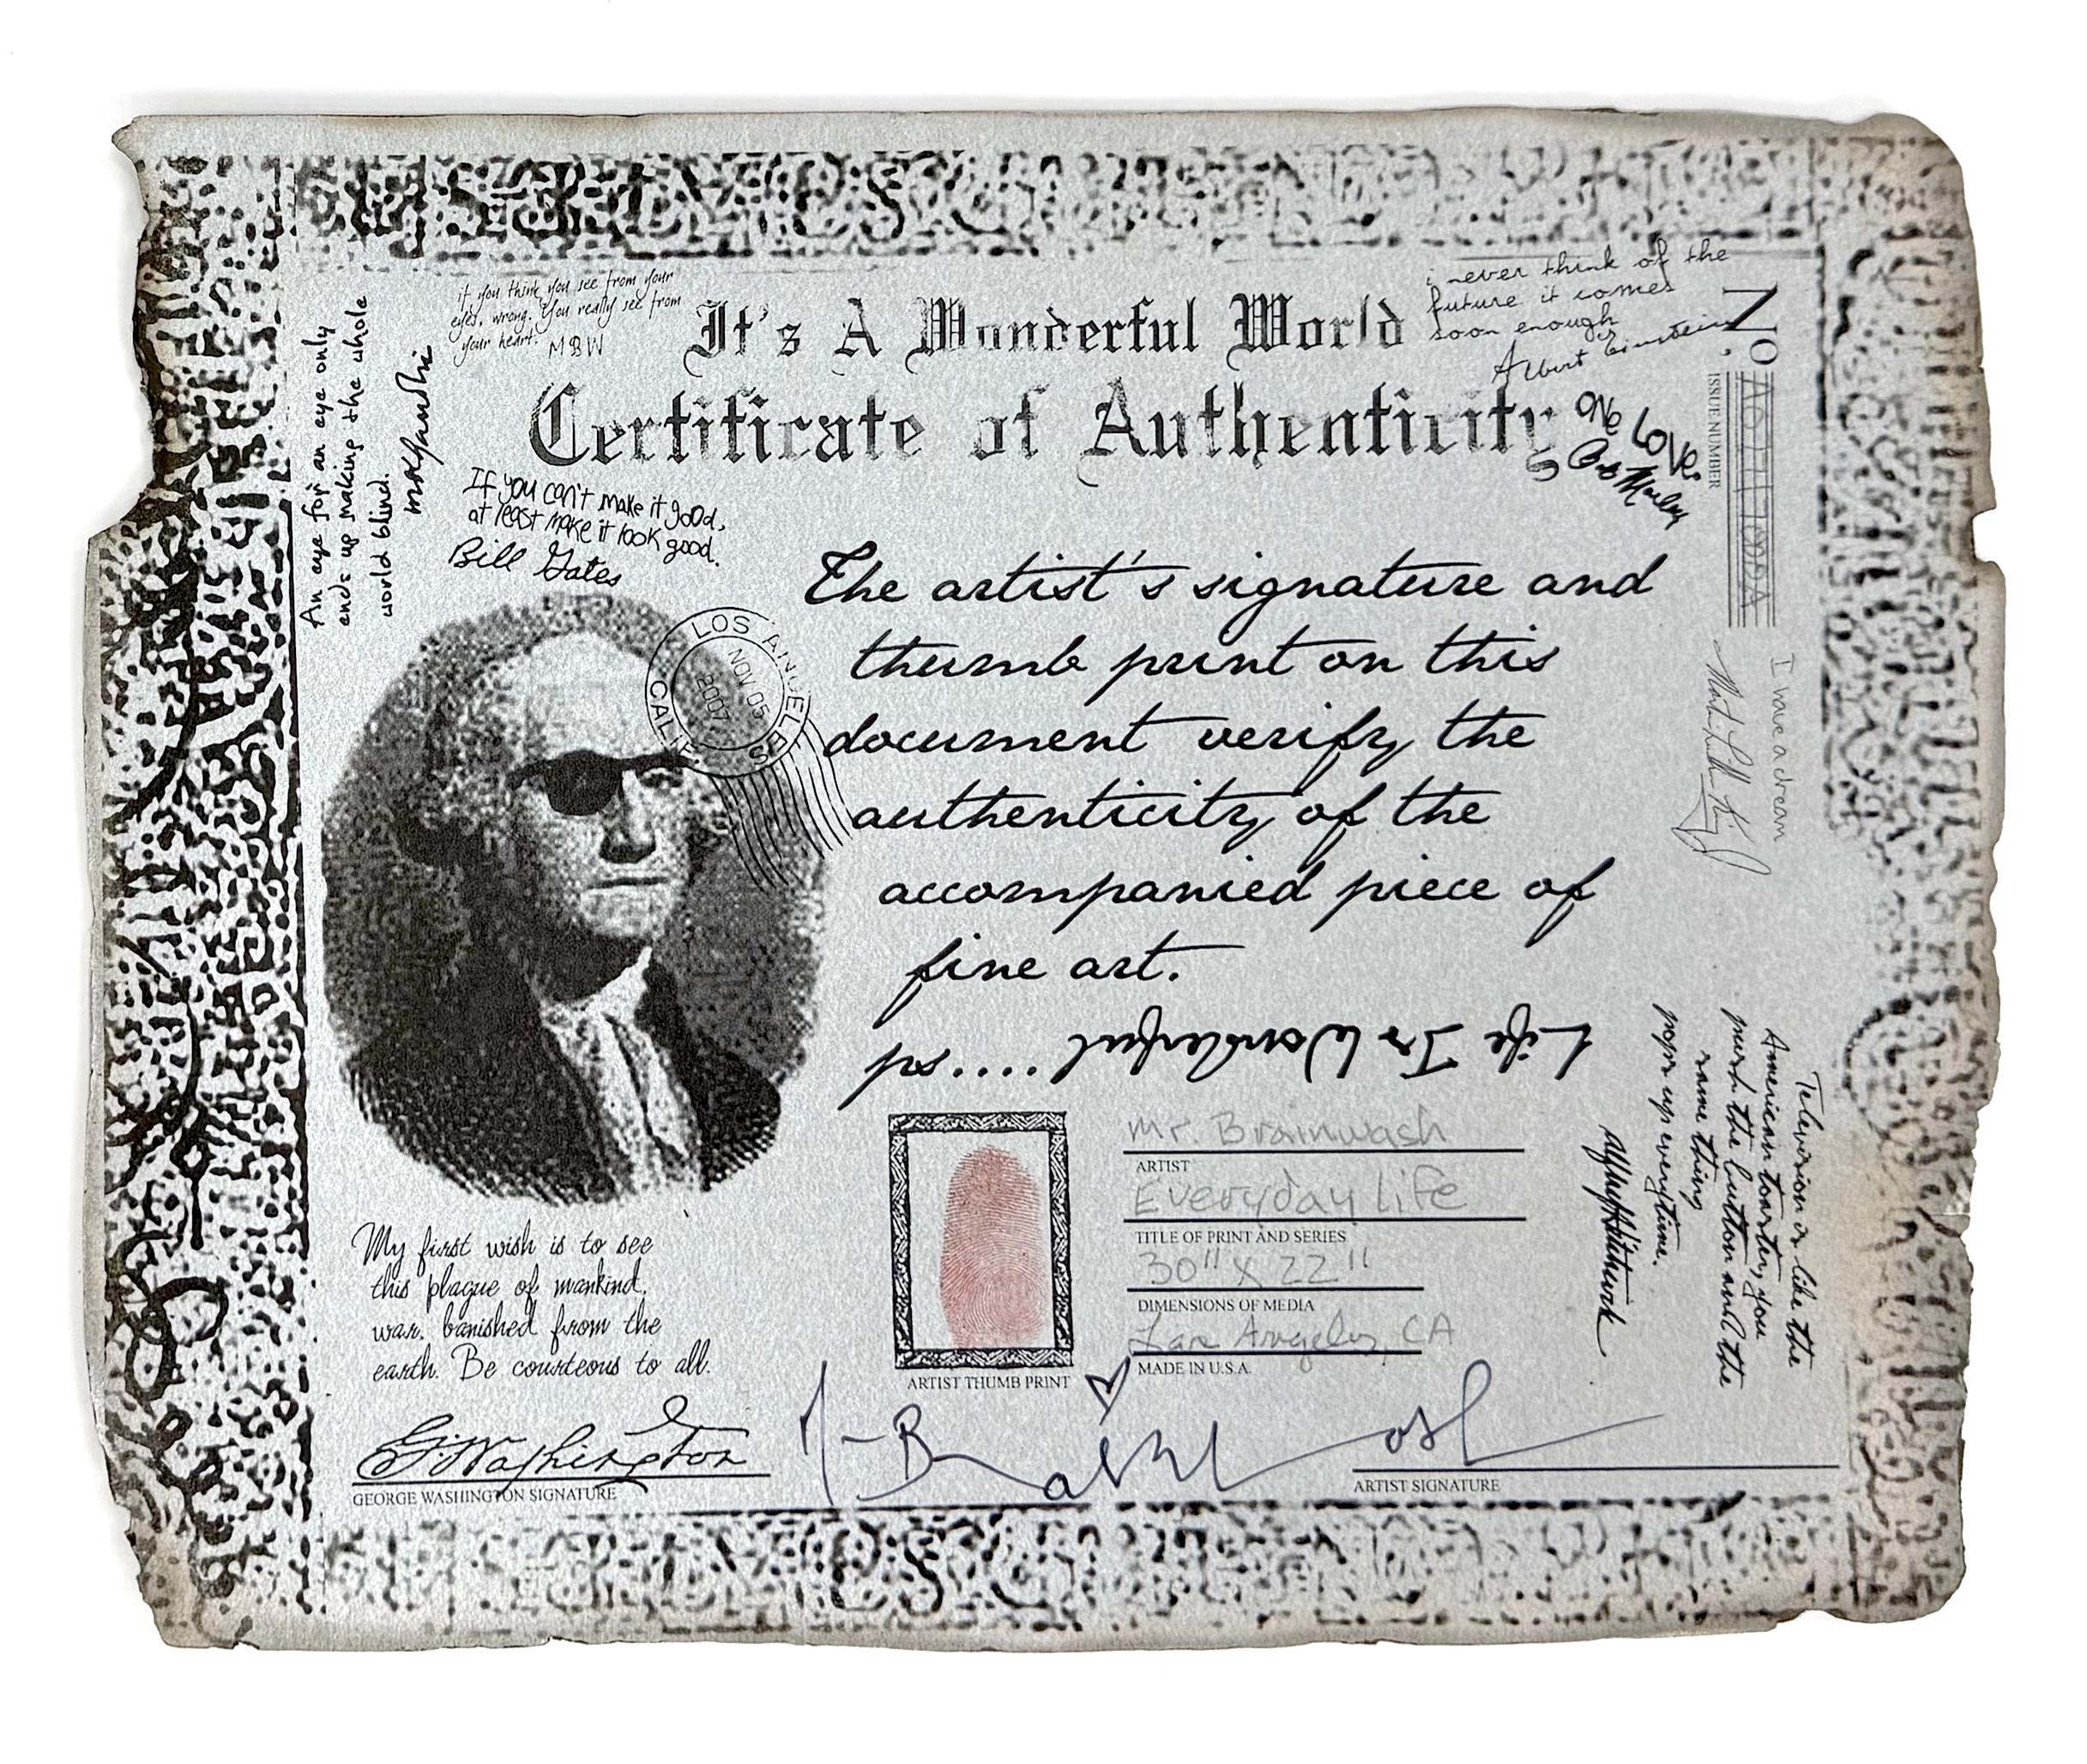 if you think you see from your
eyes, wrong. You really see from
your heart. MBW
It's A Wonderful World
i never think of the
future it comes
soon enough
Albert Einstein
No.
ISSUE NUMBER
An eye for an eye only
ends up making the whole
world blind.
mkgandhi
Certificate of Authenticity
ONE LOVE.
Bob Marley
If you can't make it good,
at least make it look good.
Bill Gates
I have a dream
Martin Luther King
LOS ANGELES
CALIF
NOV 05
2007
The artist's signature and
thumb print on this
document verify the
authenticity of the
accompanied piece of
fine art.
ps.... Life Is Wonderful
Television is like the
American toaster, you
push the button and the
same thing
pops up everytime.
Alfred Hitchcock
Mr. Brainwash
ARTIST
Everyday life
TITLE OF PRINT AND SERIES
30" x 22"
DIMENSIONS OF MEDIA
Los Angeles, CA
MADE IN U.S.A.
ARTIST THUMB PRINT
My first wish is to see
this plague of mankind,
war, banished from the
earth. Be courteous to all.
G. Washington
GEORGE WASHINGTON SIGNATURE
ARTIST SIGNATURE